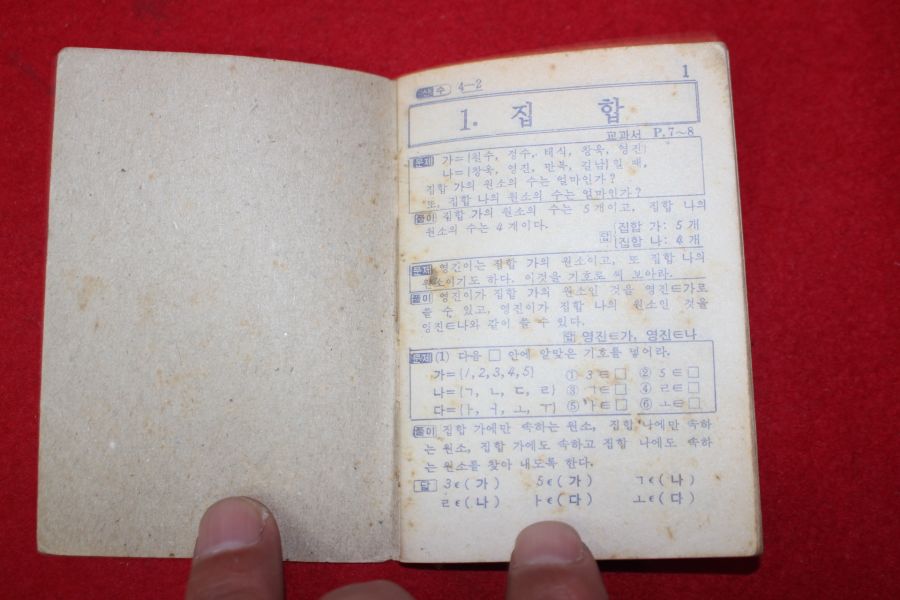 산수 4—2
1
1. 집 합
교과서 P. 7~8
문제 가={철수, 정수, 태식, 창욱, 영진}
나={창욱, 영진, 만복, 길남}일 때,
집합 가의 원소의 수는 얼마인가?
또, 집합 나의 원소의 수는 얼마인가?
풀이 집합 가의 원소의 수는 5개이고, 집합 나의
원소의 수는 4개이다.
답 {집합 가: 5개
집합 나: 4개
문제 영진이는 집합 가의 원소이고, 또 집합 나의
원소이기도 하다. 이것을 기호로 써 보아라.
풀이 영진이가 집합 가의 원소인 것을 영진∈가로
쓸 수 있고, 영진이가 집합 나의 원소인 것을
영진∈나와 같이 쓸 수 있다.
답 영진∈가, 영진∈나
문제 (1) 다음 □ 안에 알맞은 기호를 넣어라.
가={1, 2, 3, 4, 5} ① 3∈□ ② 5∈□
나={ㄱ, ㄴ, ㄷ, ㄹ} ③ ㄱ∈□ ④ ㄹ∈□
다={ㅏ, ㅓ, ㅗ, ㅜ} ⑤ ㅏ∈□ ⑥ ㅗ∈□
풀이 집합 가에만 속하는 원소, 집합 나에만 속하
는 원소, 집합 가에도 속하고 집합 나에도 속하
는 원소를 찾아 내도록 한다.
답 3∈(가) 5∈(가) ㄱ∈(나)
ㄹ∈(나) ㅏ∈(다) ㅗ∈(다)